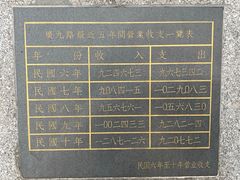 廣九路最近五年間營業收支一覽表
年份 收入 支出
民國六年 九二四六七三 九六七三四二
民國七年 九〇八四一五 一〇二九〇八三
民國八年 九五六七六一 一〇五六八三〇
民國九年 一〇〇二四三三 九二八二一四
民國十年 一二八七一二六 九二〇七七二
民國六年至十年營業收支